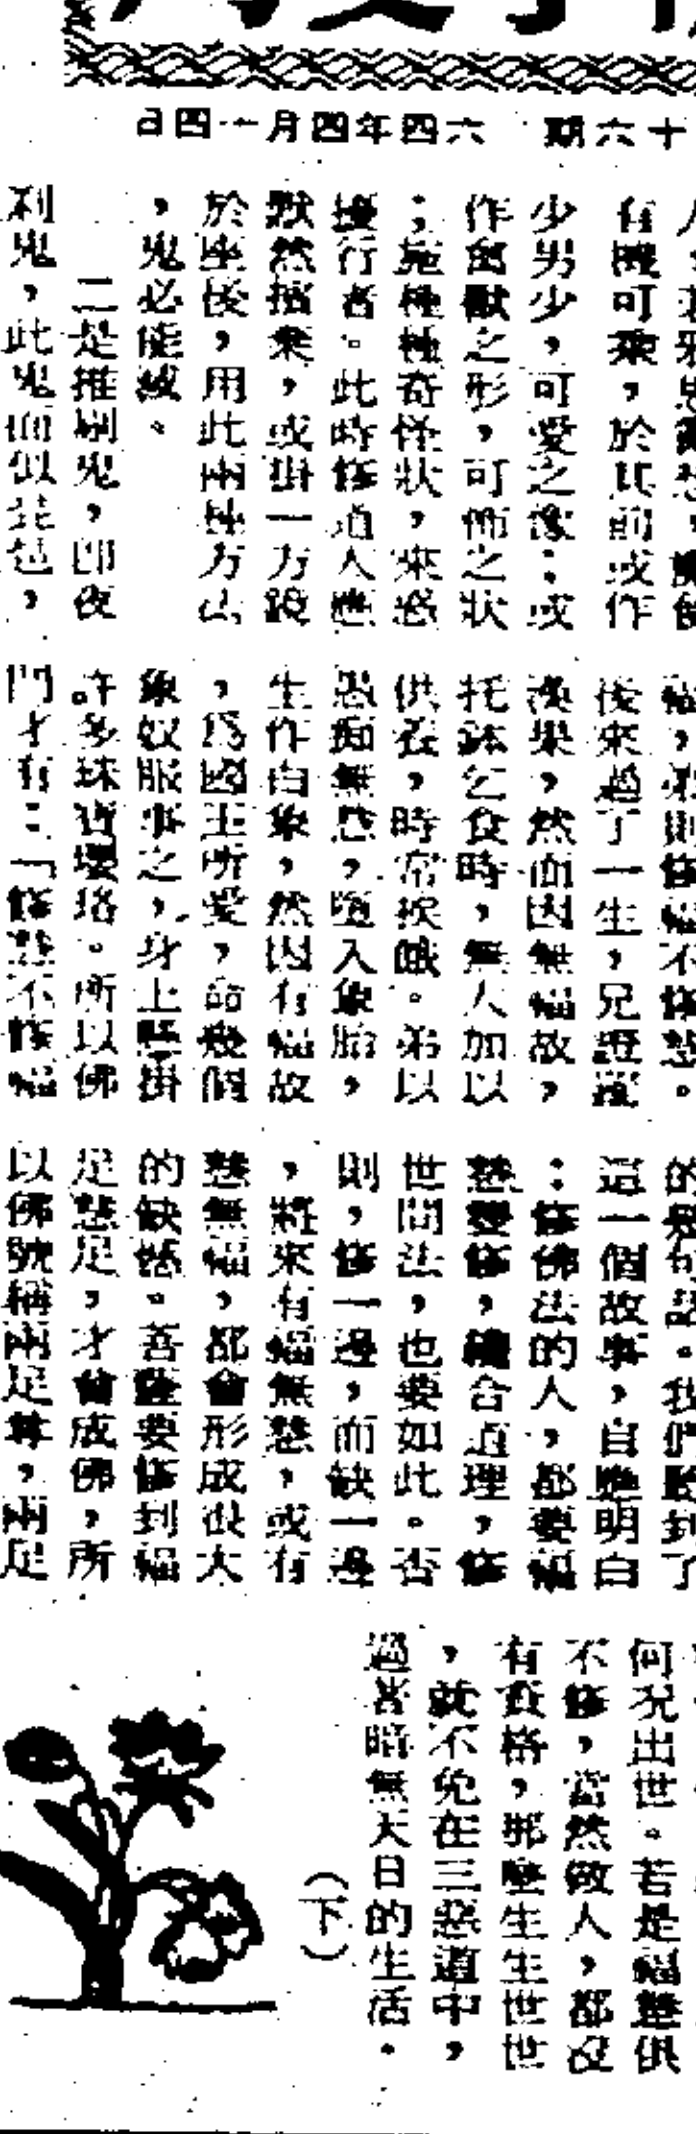 十六期 六四年四月一四日
有機可乘，於其前或作
少男少，可愛之像；或
作禽獸之形，可怖之狀
；施種種奇怪狀，來惑
擾行者。此時修道人應
默然擯棄，或掛一方鏡
於座後，用此兩種方法
，鬼必能滅。
二是推剔鬼，即夜
剎鬼，此鬼面似琵琶，
福，弟則修福不修慧。
後來過了一生，兄證羅
漢果，然而因無福故，
托鉢乞食時，無人加以
供養，時常挨餓。弟以
愚痴無慧，墮入象胎，
生作白象，然因有福故
，爲國王所愛，命幾個
象奴服事之，身上懸掛
許多珠寶瓔珞。所以佛
門才有：「修慧不修福
的幾句話。我們聽到了
這一個故事，自應明白
：修佛法的人，都要福
慧雙修，纔合道理，修
世間法，也要如此。否
則，修一邊，而缺一邊
，將來有福無慧，或有
慧無福，都會形成很大
的缺憾。菩薩要修到福
足慧足，才會成佛，所
以佛號稱兩足尊，兩足
何況出世。若是福慧俱
不修，當然做人，都沒
有資格，那麼生生世世
，就不免在三惡道中，
過著暗無天日的生活。
（下）